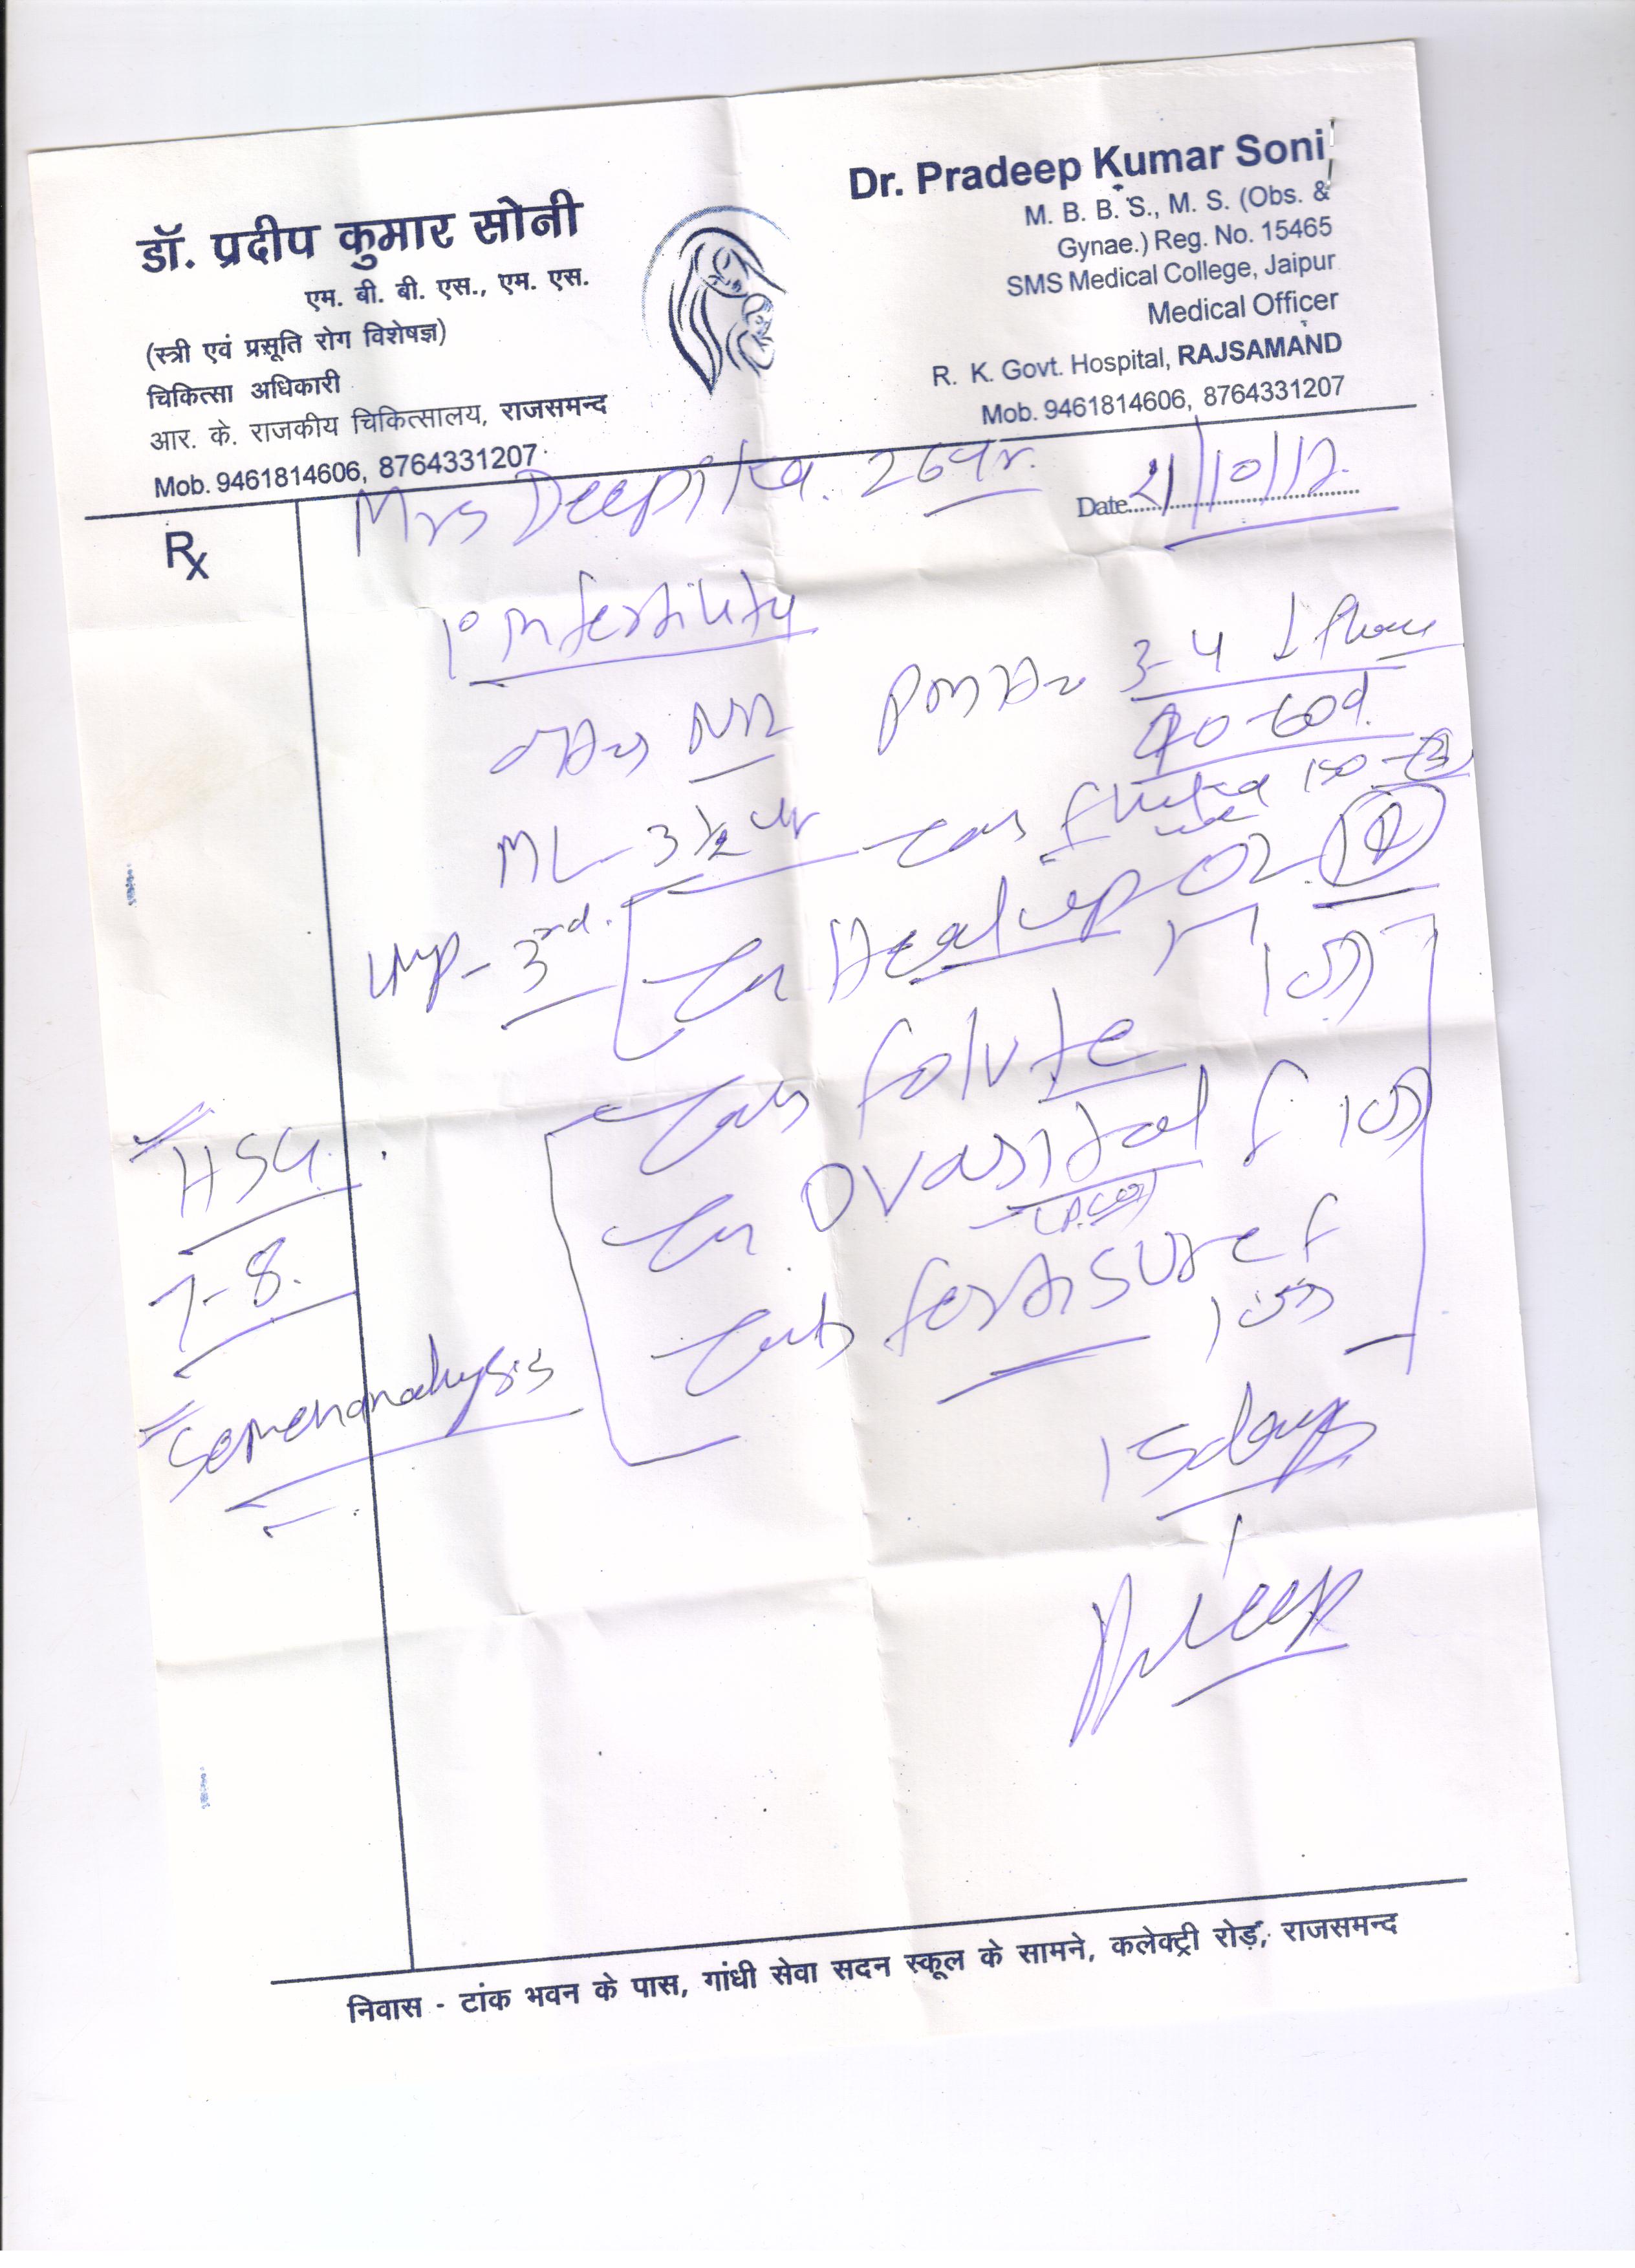 डॉ. प्रदीप कुमार सोनी
एम. बी. बी. एस., एम. एस.
(स्त्री एवं प्रसूति रोग विशेषज्ञ)
चिकित्सा अधिकारी
आर. के. राजकीय चिकित्सालय, राजसमन्द
Mob. 9461814606, 8764331207
Dr. Pradeep Kumar Soni
M. B. B. S., M. S. (Obs. &
Gynae.) Reg. No. 15465
SMS Medical College, Jaipur
Medical Officer
R. K. Govt. Hospital, RAJSAMAND
Mob. 9461814606, 8764331207
Rx
Mrs Deepika. 26yr.
Date 21/10/12.
1° Infertility
3-4
40-60d.
ML- 3½ yr
Tab
150
LMP- 3rd.
Tab folvite
Ovasital f
Tab fertisure f
15days
HSG.
7-8.
Semenanalysis
निवास - टांक भवन के पास, गांधी सेवा सदन स्कूल के सामने, कलेक्ट्री रोड़, राजसमन्द